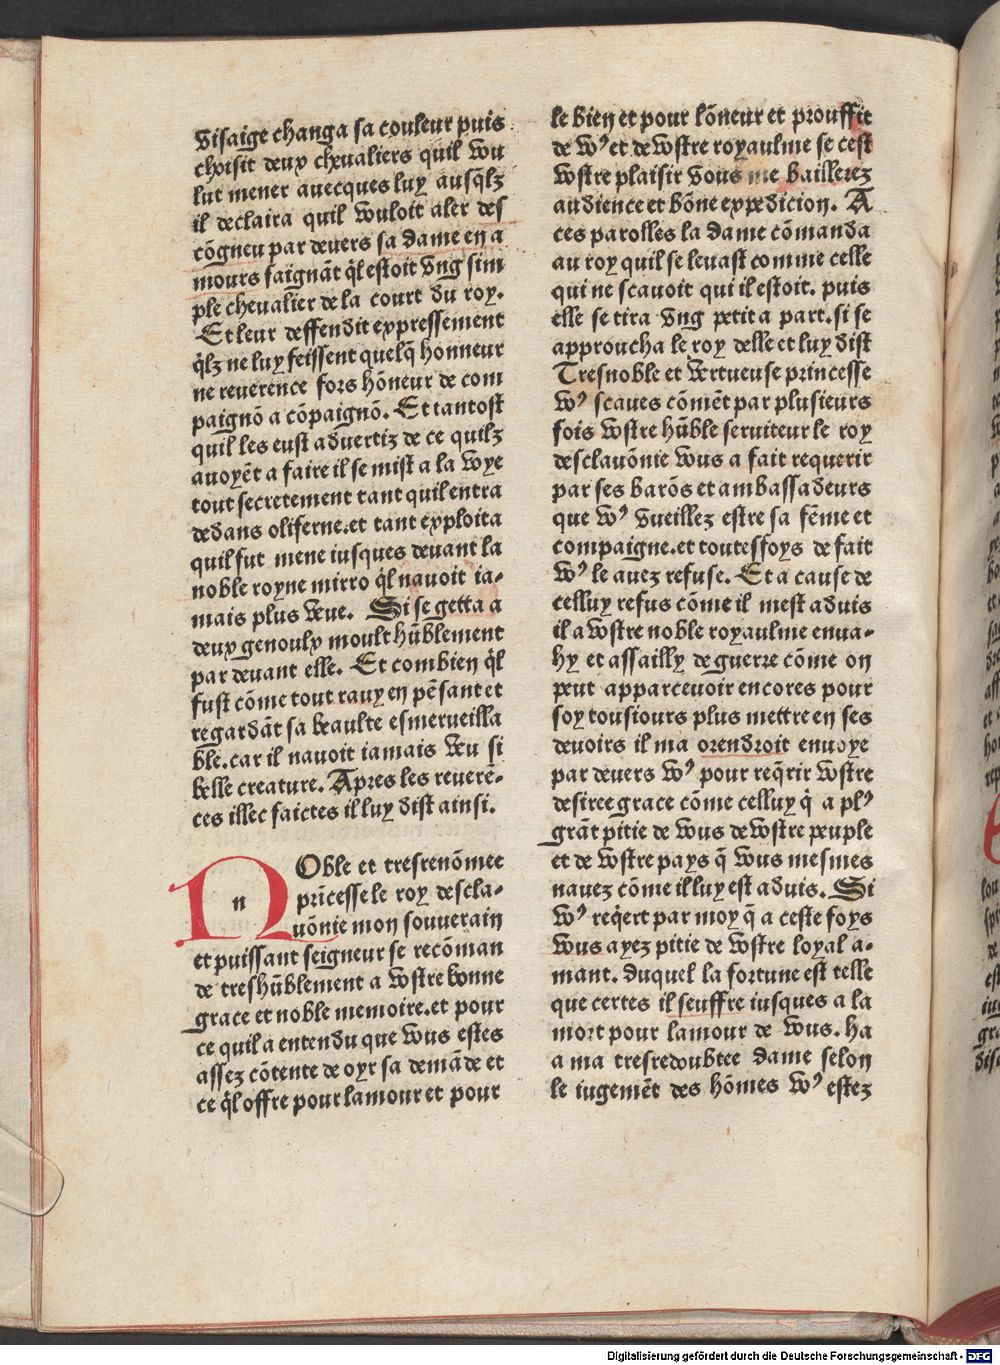 visaige changa sa couleur puis
choisit deux chevaliers quil vou
lut mener avecques luy ausq̃lz
il declaira quil vouloit aler des
cõgneu par devers sa dame en a
mours faignãt q̃l estoit vng sim
ple chevalier de la court du roy.
Et leur deffendit expressement
q̃lz ne luy feissent quelq̃ honneur
ne reverence fors hõneur de com
paignõ a cõpaignõ. Et tantost
quil les eust advertiz de ce quilz
avoyẽt a faire il se mist a la voye
tout secretement tant quil entra
dedans oliferne. et tant exploita
quil fut mene iusques devant la
noble royne mirro q̃l navoit ia-
mais plus veue. Si se getta a
deux genoulx moult hũblement
par devant elle. Et combien q̃l
fust cõme tout ravy en pẽsant et
regardãt sa beaulte esmerveilla
ble. car il navoit iamais veu si
belle creature. Apres les reverẽ-
ces illec faictes il luy dist ainsi.
N n Oble et tresrenõmee
prĩcesse le roy desclа-
võnie mon souverain
et puissant seigneur se recõman
de treshũblement a vostre bonne
grace et noble memoire. et pour
ce quil a entendu que vous estes
assez cõtente de oyr sa demãde et
ce q̃l offre pour lamour et pour
le bien et pour lõneur et prouffit
de vo⁹ et de vostre royaulme se cest
vostre plaisir vous me baillerez
audience et bõne expedicion. A
ces parolles la dame cõmanda
au roy quil se levast comme celle
qui ne scavoit qui il estoit. puis
elle se tira vng petit a part. si se
approucha le roy delle et luy dist
Tresnoble et vertueuse princesse
vo⁹ scaves cõmẽt par plusieurs
fois vostre hũble serviteur le roy
desclavõnie vous a fait requerir
par ses barõs et ambassadeurs
que vo⁹ vueillez estre sa fẽme et
compaigne. et toutesfoys de fait
vo⁹ le avez refuse. Et a cause de
celluy refus cõme il mest aduis
il a vostre noble royaulme enva-
hy et assailly de guerre cõme on
peut apparcevoir encores pour
soy tousiours plus mettre en ses
devoirs il ma orendroit envoye
par devers vo⁹ pour req̃rir vostre
desiree grace cõme celluy q̃ a pl⁹
grãt pitie de vous de vostre peuple
et de vostre pays q̃ vous mesmes
navez cõme il luy est aduis. Si
vo⁹ req̃ert par moy q̃ a ceste foys
vous ayez pitie de vostre loyal a-
mant. duquel la fortune est telle
que certes il seuffre iusques a la
mort pour lamour de vous. ha
a ma tresredoubtee dame selon
le iugemẽt des hõmes vo⁹ estez
Digitalisierung gefördert durch die Deutsche Forschungsgemeinschaft - DFG